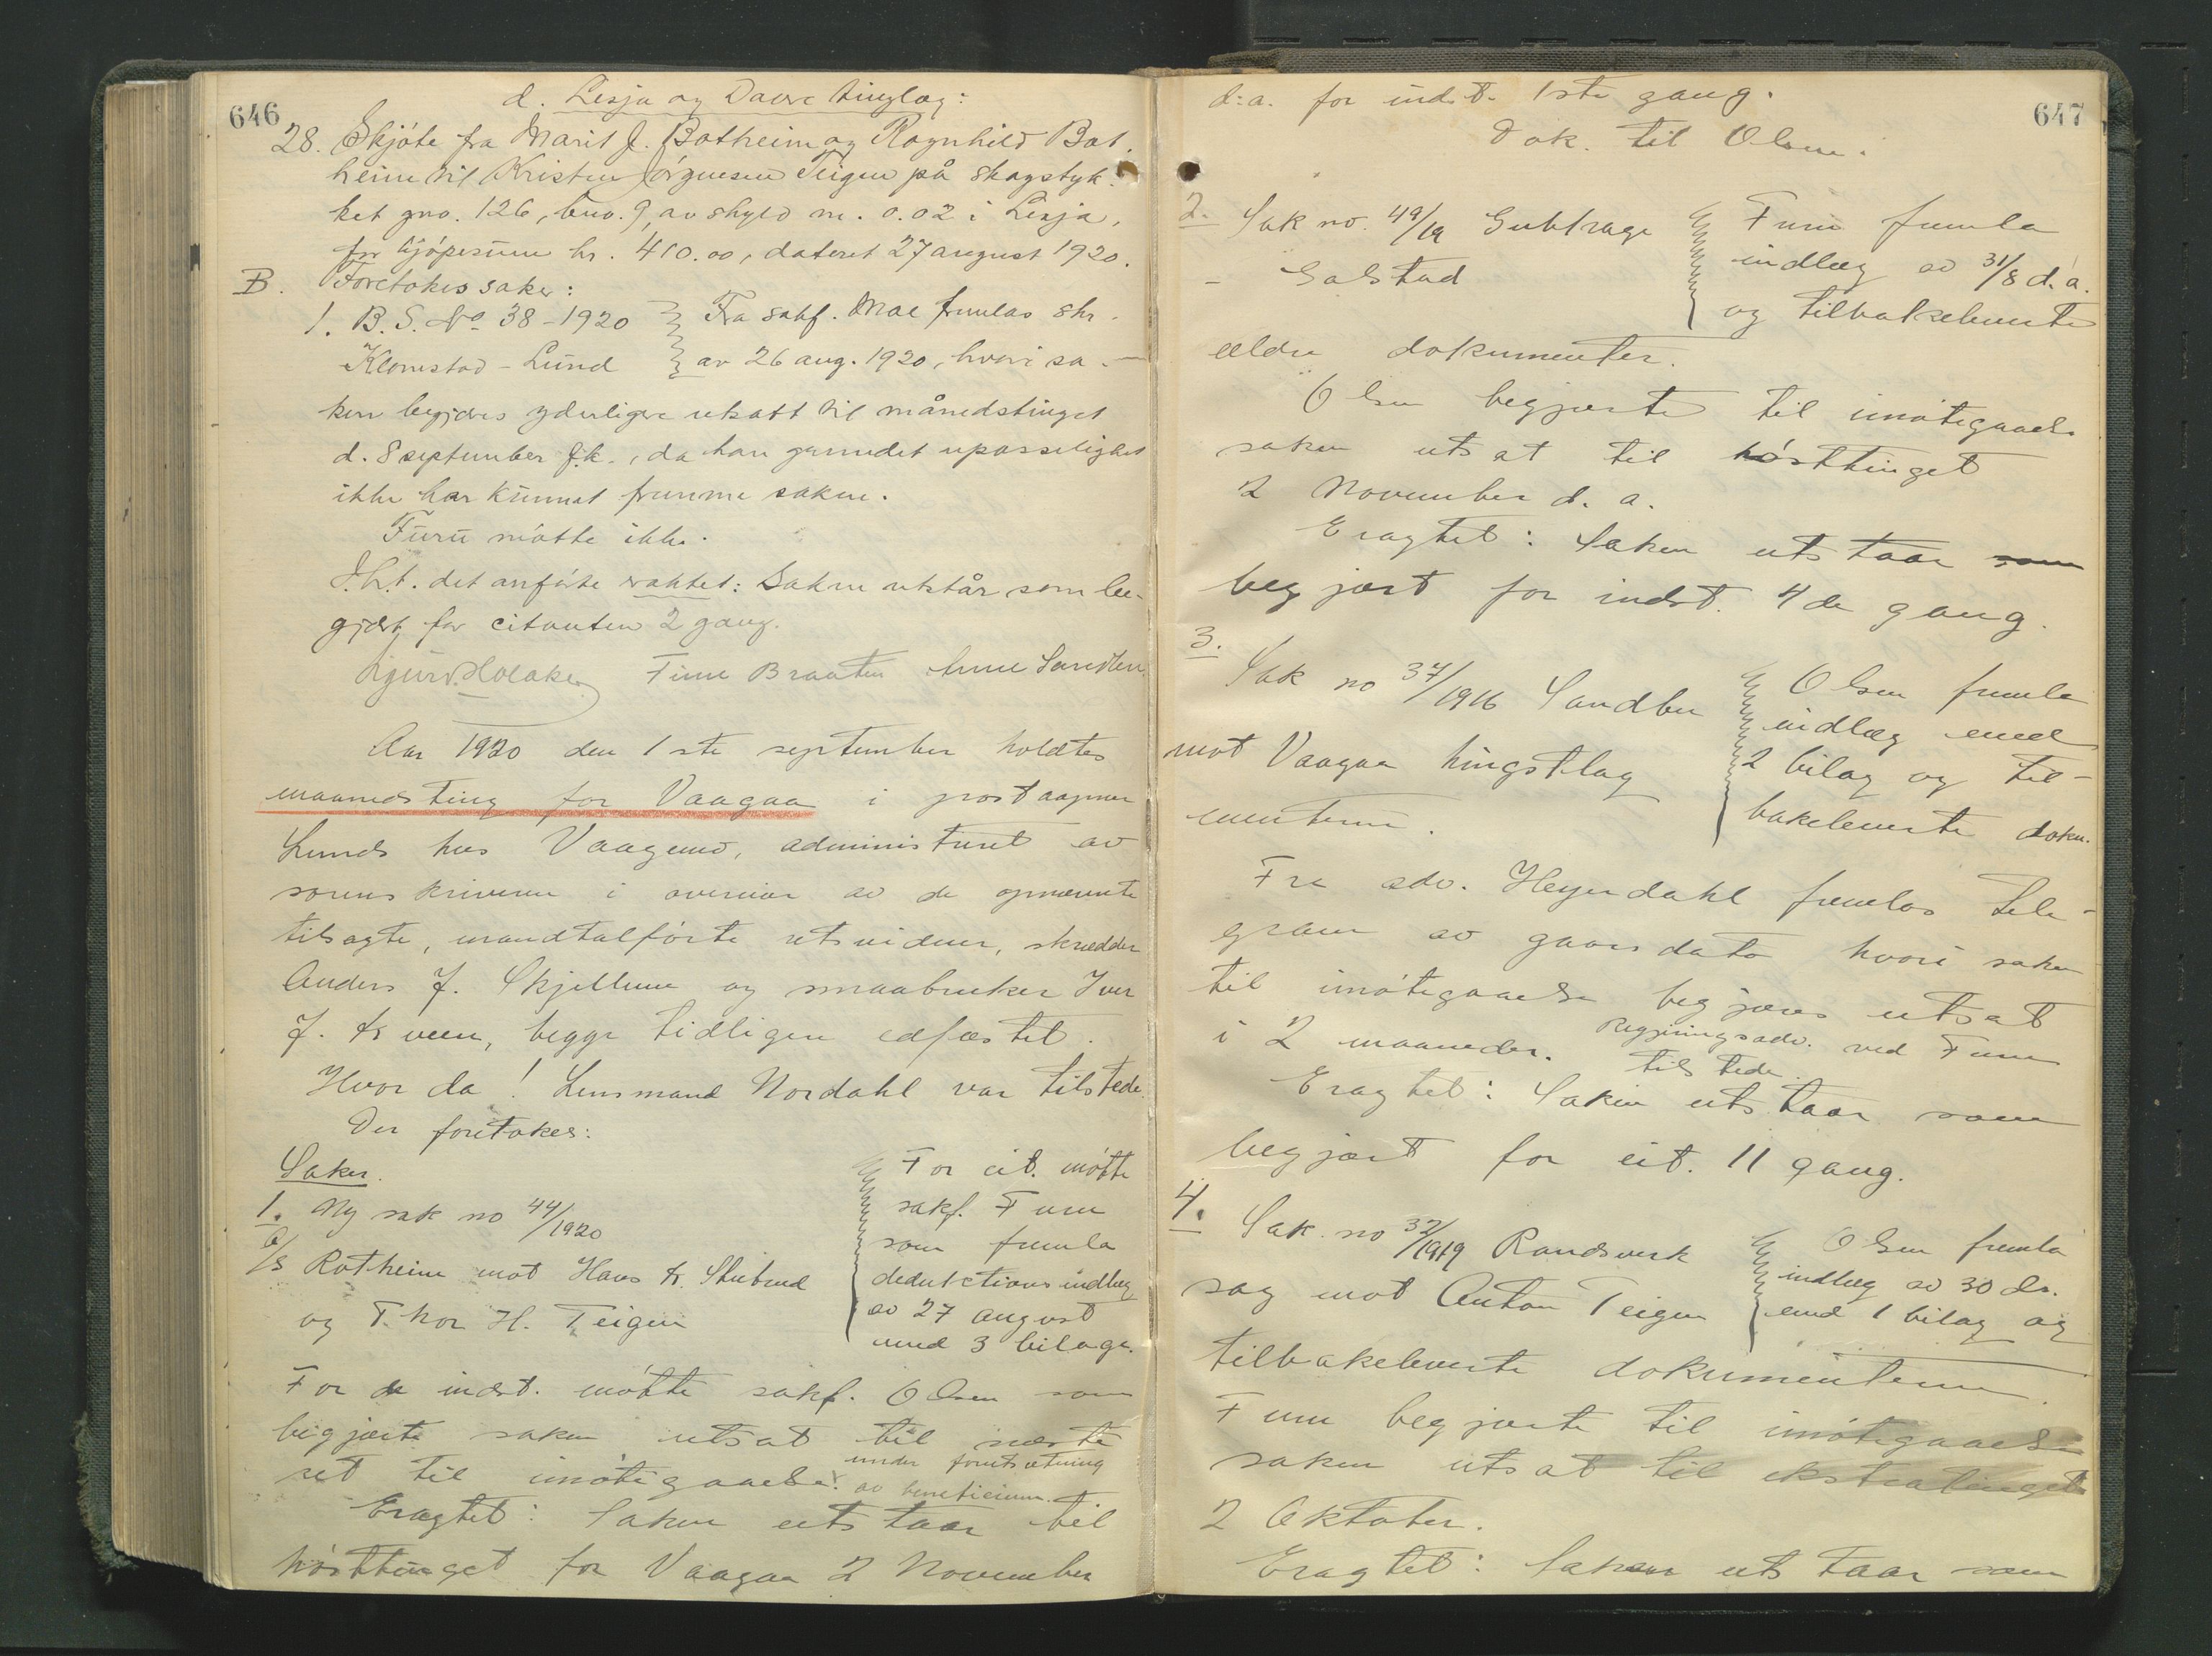 646
d. Lesja og Dovre tinglag:
28. Skjöte fra Marit J. Botheim og Ragnhild Bot-
heim til Kristen Jörgensen Teigen på skogstyk-
ket gno. 126, bno. 9, av skyld m. 0.02 i Lesja,
for kjöpesum kr. 410.00, dateret 27 august 1920.
B. Foretokes saker:
1. B. S. No 38-1920
Klomstad - Lund
Fra sakf. Moe fremlas skr.
av 26 aug. 1920, hvori sa-
ken begjæres yderligere utsatt til månedstinget
d. 8 september f.k., da han grundet upasselighet
ikke har kunnet fremme saken.
Furu mötte ikke.
I.h.t. det anförte vaktet: Saken utstår som be-
gjært for citanten 2 gang.
Sigurd Holaker Time Braaten Anne Sandbu
Aar 1920 den 1ste september holdtes
maanedsting for Vaagaa i postaapner
Lunds hus Vaagemo, administreret av
sorenskriveren i overvær av de opnævnte
tilsagte, mandtalförte retsvidner, skrædder
Anders J. Skjellum og smaabruker Iver
J. Kveen, begge tidligere edfæstet.
Hvor da! Lensmand Nordahl var tilstede.
Der foretokes:
Saker.
1. Ny sak no 44/1920
A/S Rotheim mot Hans K. Stubrud
og Thor H. Teigen
For cit. mötte
sakf. Furu
som fremla
deduktionsindlæg
av 27 august
med 3 bilage.
For de indst. mötte sakf. Olsen som
begjærte saken utsat til næste
ret til imötegaaelse under forutsætning
av beneficium.
Eragtet: Saken utstaar til
hösttinget for Vaagaa 2 November
647
d.a. for indst. 1ste gang.
Dok. til Olsen.
2. Sak no. 49/19 Gubtrage
- Galstad
Furu fremla
indlæg av 31/8 d.a.
og tilbakeleverte
ældre dokumenter.
Olsen begjærte til imötegaaelse
saken utsat til hösttinget
2 November d. a.
Eragtet: Saken utstaar som
begjært for indst. 4de gang.
3. Sak no 37/1916 Sandbu
mot Vaagaa hingstlag
Olsen fremla
indlæg med
2 bilag og til-
bakeleverte doku-
menterne.
Fra adv. Heyerdahl fremlas tele-
gram av gaars dato hvori saken
til imötegaaelse begjæres utsat
i 2 maaneder. Regjeringsadv. ved Furu
tilstede.
Eragtet: Saken utstaar som
begjært for cit. 11 gang.
4. Sak. no 32/1919 Randsverk
sag mot Anton Teigen
Olsen fremla
indlæg av 30 ds.
med 1 bilag og
tilbakeleverte dokumenterne.
Furu begjærte til imötegaaelse
saken utsat til ekstratinget
2 Oktober.
Eragtet: Saken utstaar som